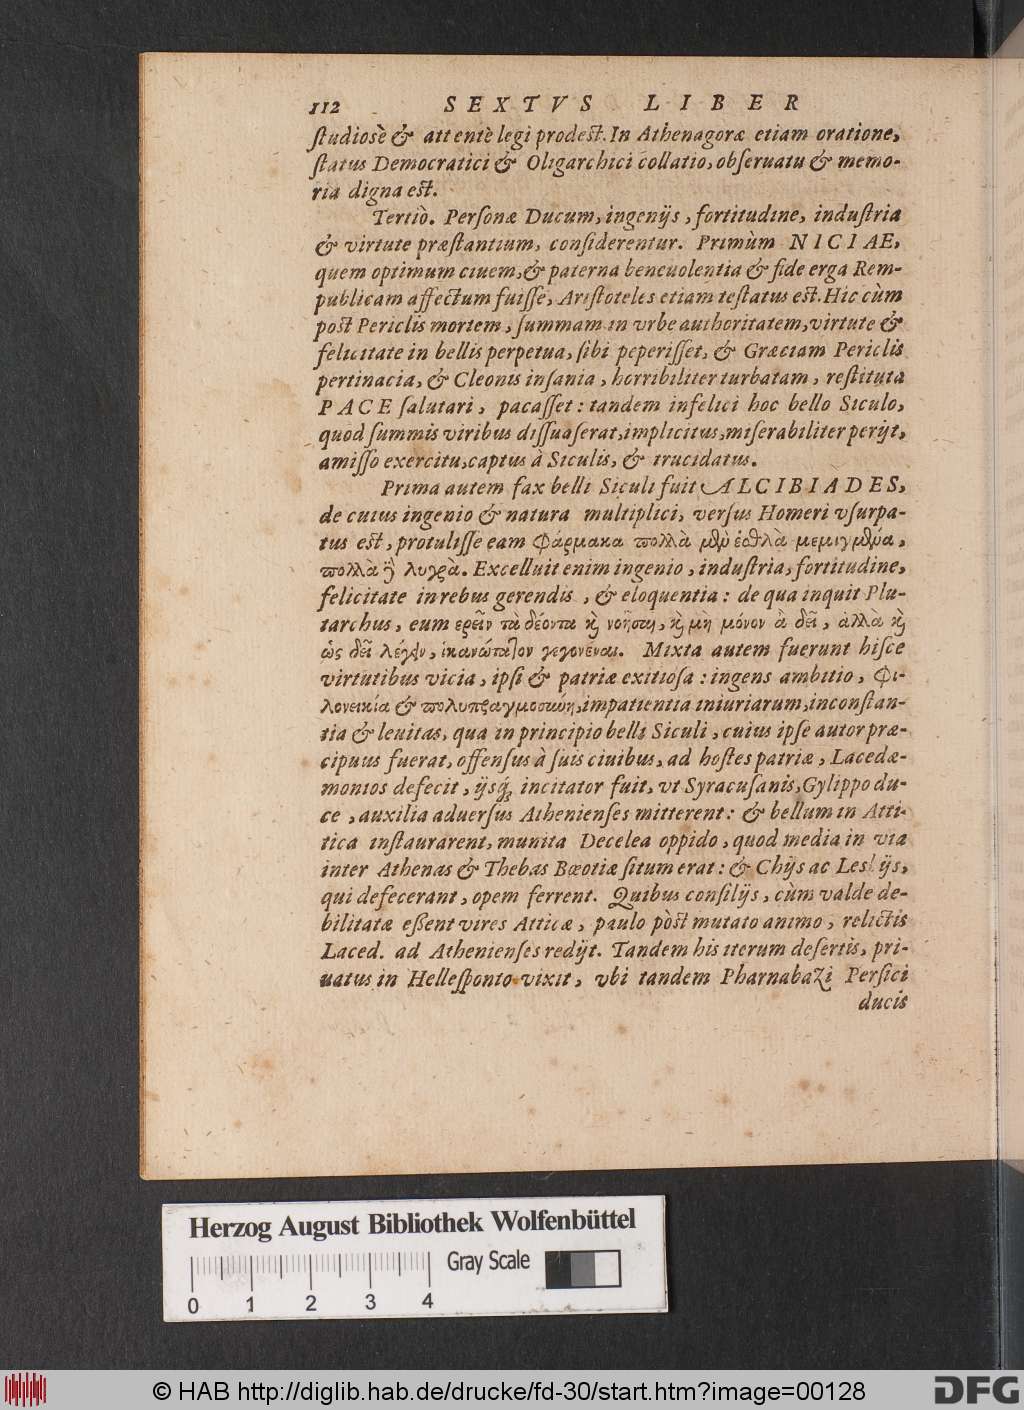 112 SEXTVS LIBER
ſtudiosè & attentè legi prodest. In Athenagoræ etiam oratione,
ſtatus Democratici & Oligarchici collatio, obſeruatu & memo-
ria digna est.
Tertiò. Perſonæ Ducum, ingenijs, fortitudine, induſtria
& virtute præſtantium, conſiderentur. Primùm NICIAE,
quem optimum ciuem, & paterna beneuolentia & fide erga Rem-
publicam affectum fuiſſe, Ariſtoteles etiam teſtatus est. Hic cùm
post Periclis mortem, ſummam in vrbe authoritatem, virtute &
felicitate in bellis perpetua, ſibi peperiſſet, & Græciam Periclis
pertinacia, & Cleonis inſania, horribiliter turbatam, reſtituta
PACE ſalutari, pacaſſet: tandem infelici hoc bello Siculo,
quod ſummis viribus diſſuaſerat, implicitus, miſerabiliter perijt,
amiſſo exercitu, captus à Siculis, & trucidatus.
Prima autem fax belli Siculi fuit ALCIBIADES,
de cuius ingenio & natura multiplici, verſus Homeri vſurpa-
tus est, protuliſſe eam Φάρμακα πολλὰ μὲν ἐσθλὰ μεμιγμένα,
πολλὰ ἢ λυγρὰ. Excelluit enim ingenio, induſtria, fortitudine,
felicitate in rebus gerendis, & eloquentia: de qua inquit Plu-
tarchus, eum ερεῖν τὰ δέοντα καὶ νοῆσαι, καὶ μὴ μόνον ἃ δεῖ, ἀλλὰ καὶ
ὡς δεῖ λέγειν, ἱκανώτατον γεγονέναι. Mixta autem fuerunt hiſce
virtutibus vicia, ipſi & patriæ exitioſa: ingens ambitio, Φι-
λονεικία & πολυπραγμοσύνη, impatientia iniuriarum, inconſtan-
tia & leuitas, qua in principio belli Siculi, cuius ipſe autor præ-
cipuus fuerat, offenſus à ſuis ciuibus, ad hoſtes patriæ, Lacedæ-
monios defecit, ijsq́; incitator fuit, vt Syracuſanis, Gylippo du-
ce, auxilia aduerſus Athenienſes mitterent: & bellum in Atti-
tica inſtaurarent, munita Decelea oppido, quod media in via
inter Athenas & Thebas Bœotiæ ſitum erat: & Chijs ac Lesbijs,
qui defecerant, opem ferrent. Quibus conſilijs, cùm valde de-
bilitatæ eßent vires Atticæ, paulo pòst mutato animo, relictis
Laced. ad Athenienſes redijt. Tandem his iterum deſertis, pri-
uatus in Helleſponto vixit, vbi tandem Pharnabazi Perſici
ducis
Herzog August Bibliothek Wolfenbüttel
Gray Scale
0 1 2 3 4
© HAB http://diglib.hab.de/drucke/fd-30/start.htm?image=00128
DFG